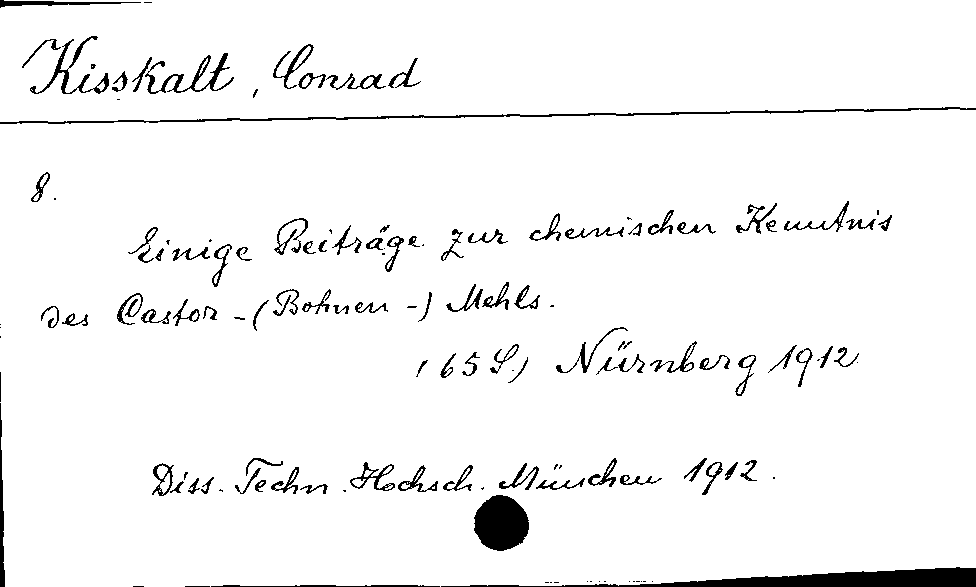 Kisskalt, Conrad
8.
Einige Beiträge zur chemischen Kenntnis
des Castor-(Bohnen-) Mehls.
(65 S.) Nürnberg 1912
Diss. Techn. Hochsch. München 1912.